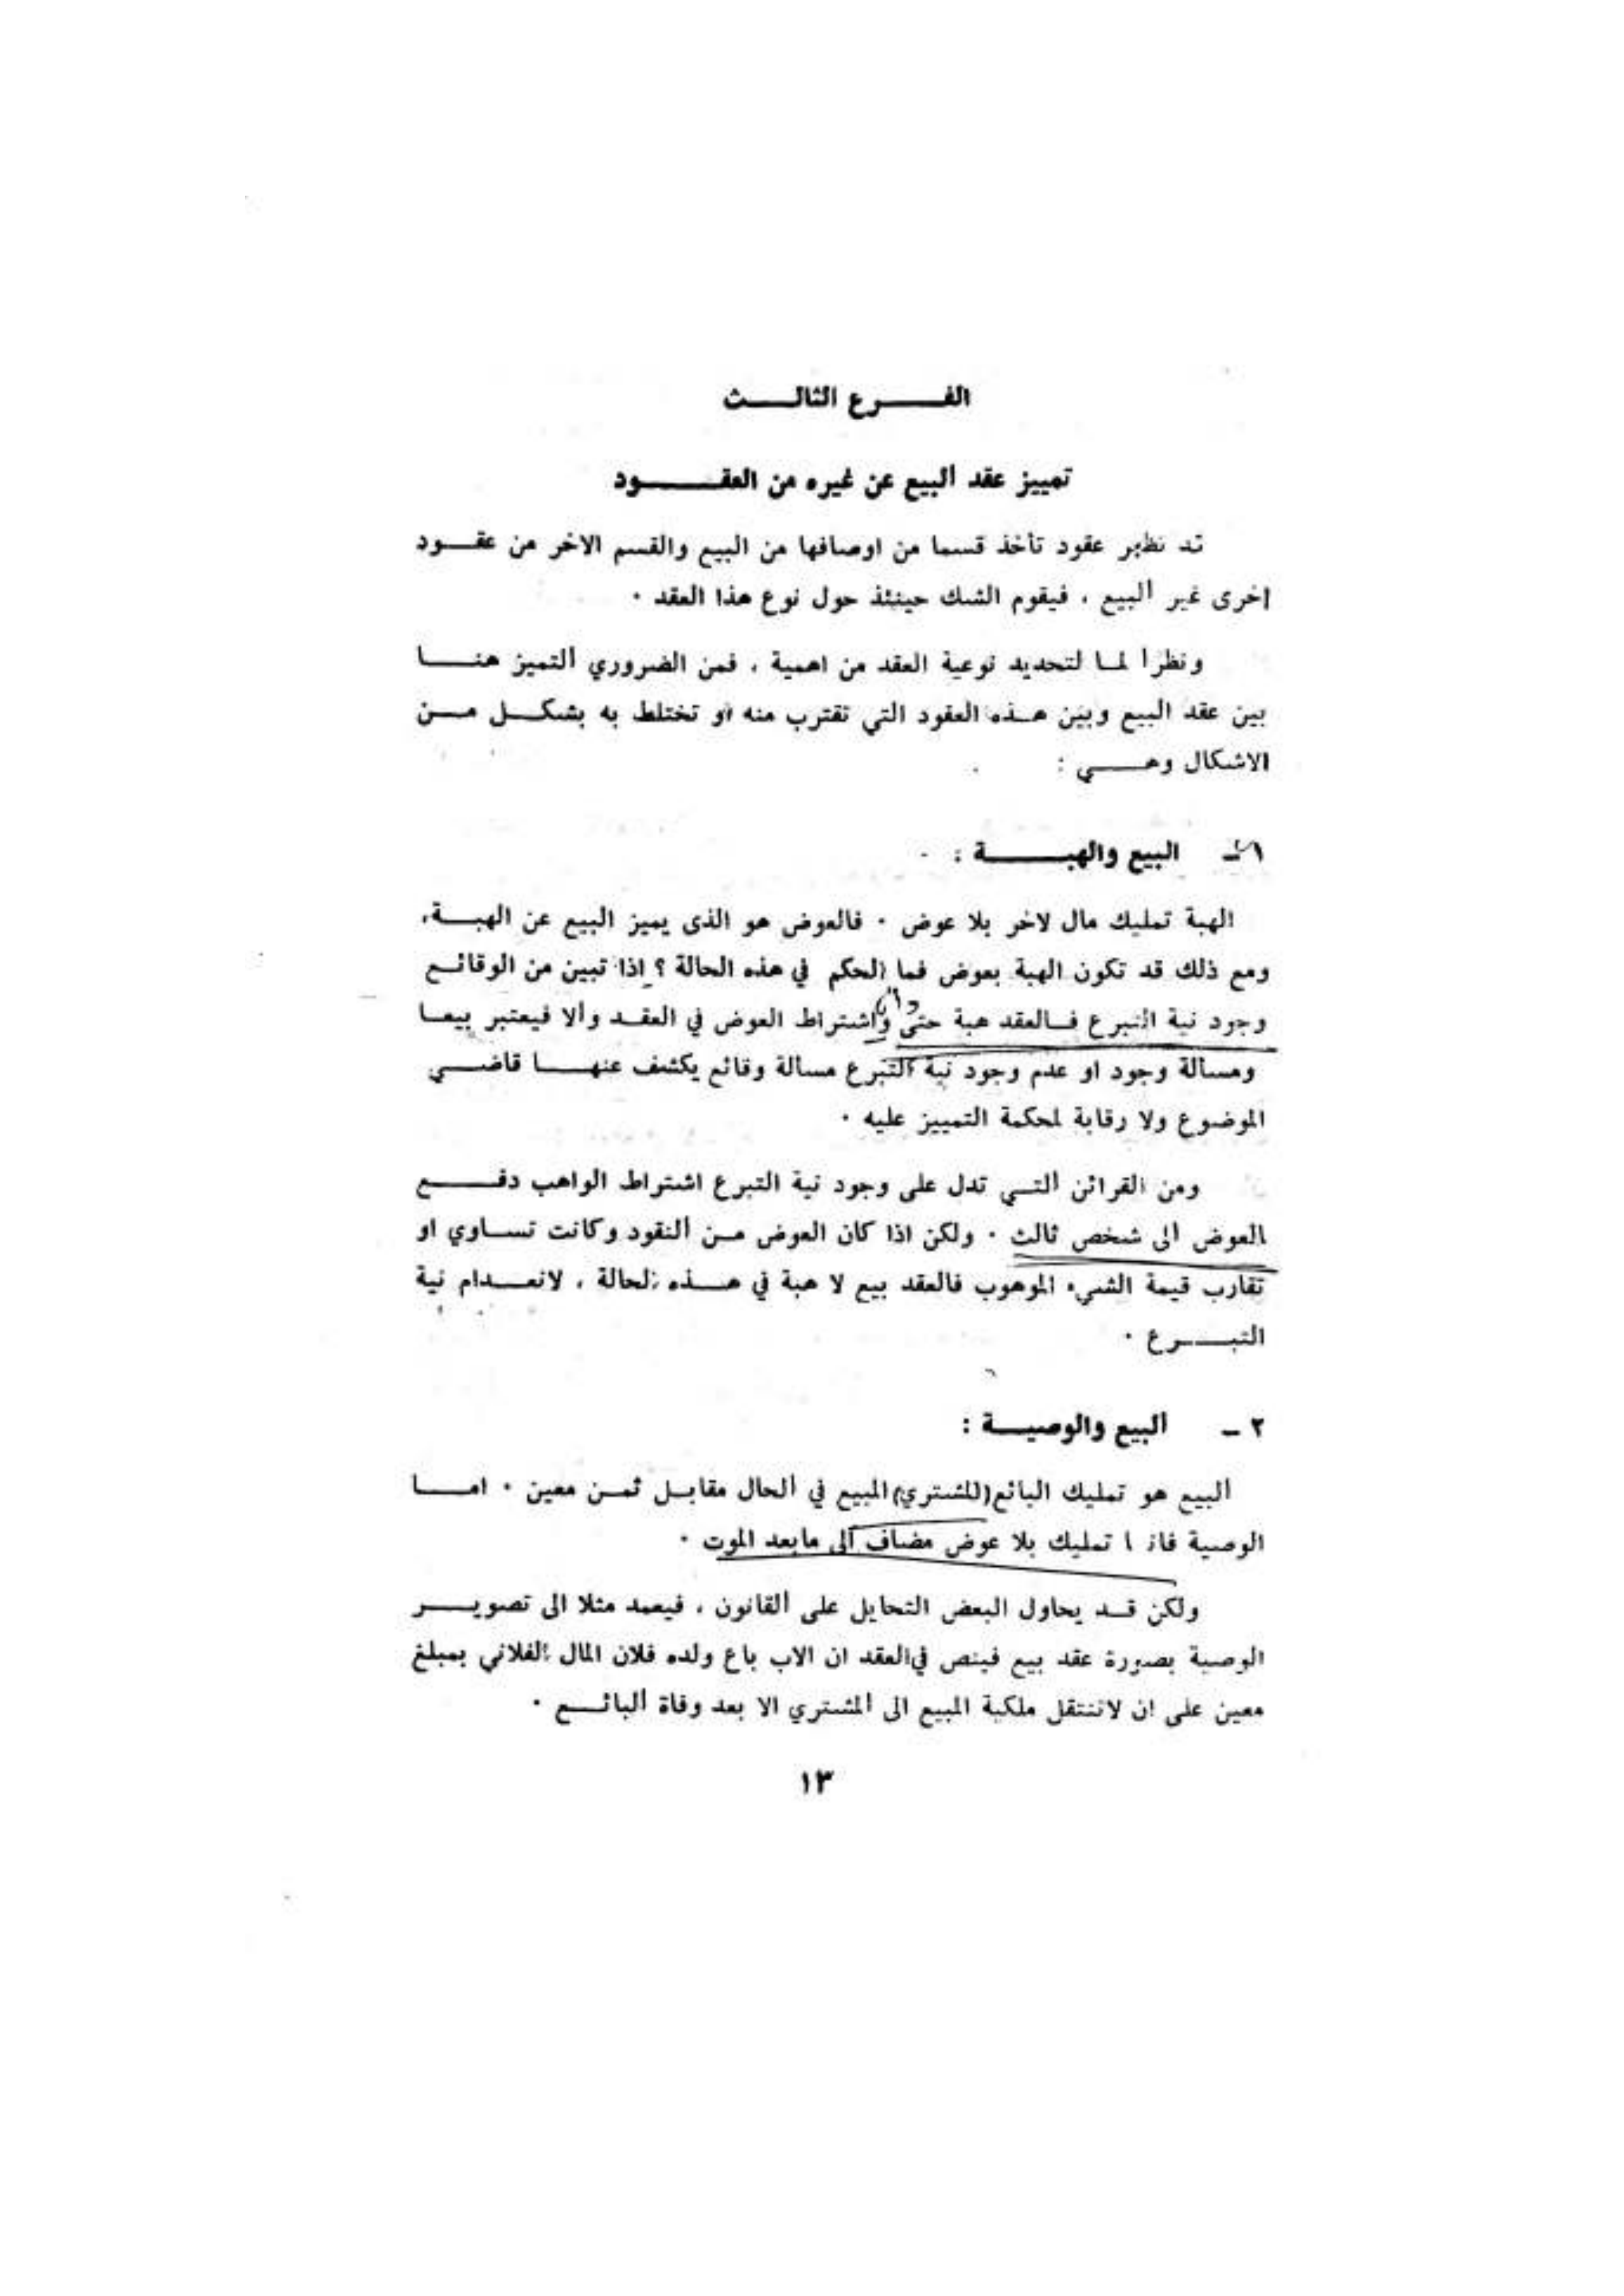 الفرع الثالث
تمييز عقد البيع عن غيره من العقود
قد تظهر عقود تأخذ قسما من اوصافها من البيع والقسم الاخر من عقود
اخرى غير البيع ، فيقوم الشك حينئذ حول نوع هذا العقد ٠
ونظرا لما لتحديد نوعية العقد من اهمية ، فمن الضروري التميز هنا
بين عقد البيع وبين هذه العقود التي تقترب منه او تختلط به بشكل من
الاشكال وهي :
١ـ البيع والهبة :
الهبة تمليك مال لاخر بلا عوض ٠ فالعوض هو الذى يميز البيع عن الهبة،
ومع ذلك قد تكون الهبة بعوض فما الحكم في هذه الحالة ؟ اذا تبين من الوقائع
وجود نية التبرع فالعقد هبة حتى وان واشتراط العوض في العقد والا فيعتبر بيعا
ومسالة وجود او عدم وجود نية التبرع مسالة وقائع يكشف عنها قاضي
الموضوع ولا رقابة لمحكمة التمييز عليه ٠
ومن القرائن التي تدل على وجود نية التبرع اشتراط الواهب دفع
العوض الى شخص ثالث ٠ ولكن اذا كان العوض من النقود وكانت تساوي او
تقارب قيمة الشيء الموهوب فالعقد بيع لا هبة في هذه الحالة ، لانعدام نية
التبرع ٠
٢ ـ البيع والوصية :
البيع هو تمليك البائع (للمشتري) المبيع في الحال مقابل ثمن معين ٠ اما
الوصية فانها تمليك بلا عوض مضاف الى مابعد الموت ٠
ولكن قد يحاول البعض التحايل على القانون ، فيعمد مثلا الى تصوير
الوصية بصورة عقد بيع فينص في العقد ان الاب باع ولده فلان المال الفلاني بمبلغ
معين على ان لاتنتقل ملكية المبيع الى المشتري الا بعد وفاة البائع ٠
١٣